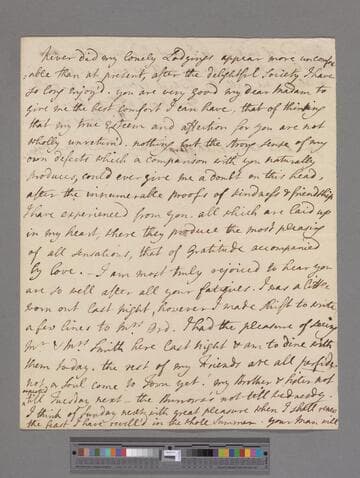 Never did my lonely Lodgings appear more uncomfor
=able than at present, after the delightful Society I have
so long enjoyd. you are very good my dear Madam to
give me the best comfort I can have, that of thinking
that my true Esteem and affection for you are not
wholly unreturnd. nothing but the strong sense of my
own defects which a comparison with you naturally
produces, could ever give me a doubt on this head,
after the innumerable proofs of kindness & friendship
I have experienced from you. all which are laid up
in my heart, where they produce the most pleasing
of all sensations, that of Gratitude accompanied
by Love. - I am most truly rejoiced to hear you
are so well after all your fatigues. I was a little
worn out last night, however I made shift to write
a few lines to Mrs Ord. I had the pleasure of seeing
Mr & Mrs Smith here last night & am to dine with
them today. the rest of my Friends are all
not a Soul come to Town yet. my Brother & Sister not
till Tuesday next - the not till Wednesdy.
I think of Sunday next with great pleasure when I shall
the best I have in the whole Summer. your Man will